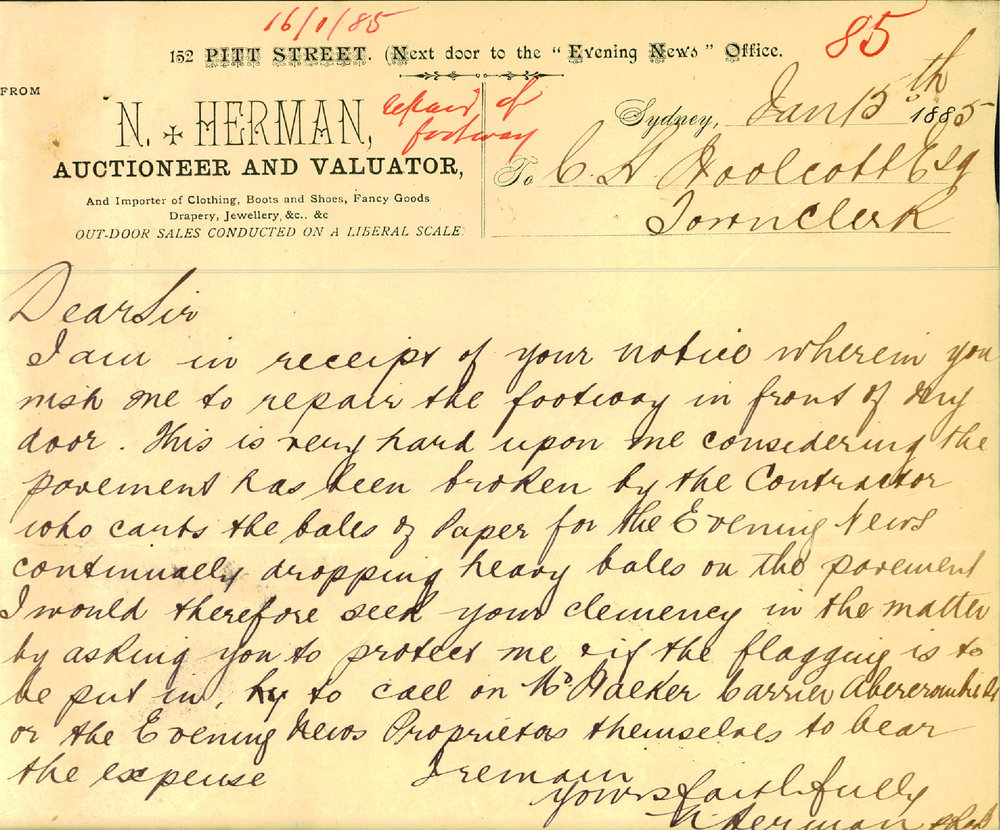 16/1/85
85
152 PITT STREET. (Next door to the "Evening News" Office.
FROM
N. HERMAN,
AUCTIONEER AND VALUATOR,
And Importer of Clothing, Boots and Shoes, Fancy Goods
Drapery, Jewellery, &c.. &c
OUT-DOOR SALES CONDUCTED ON A LIBERAL SCALE.
repair of
footway
Sydney, Jan 15th 1885
To C. H. Woolcott Esq
Town Clerk
Dear Sir
I am in receipt of your notice wherein you
wish me to repair the footway in front of my
door. This is very hard upon me considering the
pavement has been broken by the Contractor
who carts the bales of Paper for the Evening News
continually dropping heavy bales on the pavement
I would therefore seek your clemency in the matter
by asking you to protect me & if the flagging is to
be put in, to call on Mr Walker Carrier Abercrombie St
or the Evening News Proprietors themselves to bear
the expense
I remain
Yours faithfully
N Herman